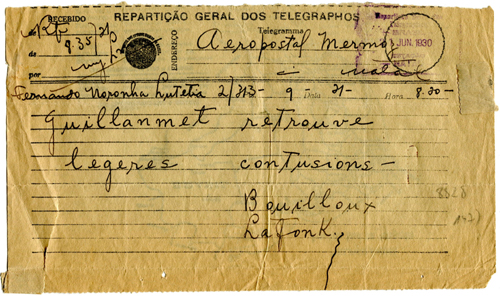 REPARTIÇÃO GERAL DOS TELEGRAPHOS
RECEBIDO
Telegramma
de
8.35
de
por
ENDEREÇO
Aeropostal Mermoz
JUN. 1930
Natal
Fernando Noronha Lutetia 2/313- 9 Data 21- Hora 8.30-
Guillanmet retrouve
legeres contusions -
Bouilloux
Lafonk.